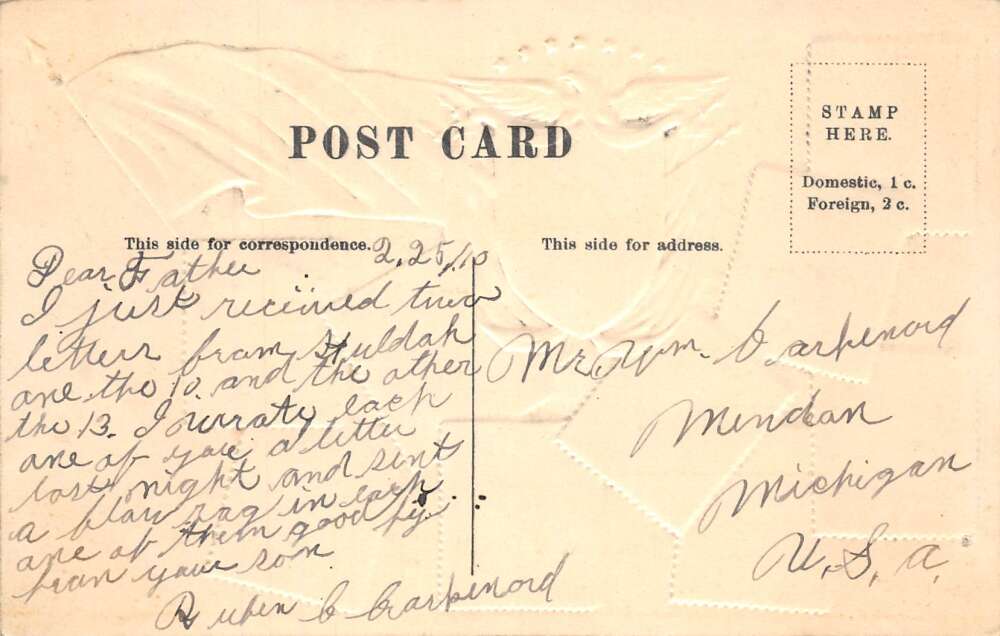 POST CARD
STAMP
HERE.
Domestic, 1 c.
Foreign, 2 c.
This side for correspondence.
This side for address.
2,25,10
Dear Father
I just received two
letters from Huldah
one the 10. and the other
the 13. I wraty each
one of you a letter
last night and sent
a in each
one of them good by.
from your son
Ruben C Carpenord
Mr. Wm. Carpenord
Mendon
Michigan
U. S. a.